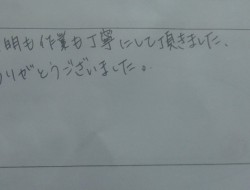 明も作業も丁寧にして頂きました、
りがとうございました。